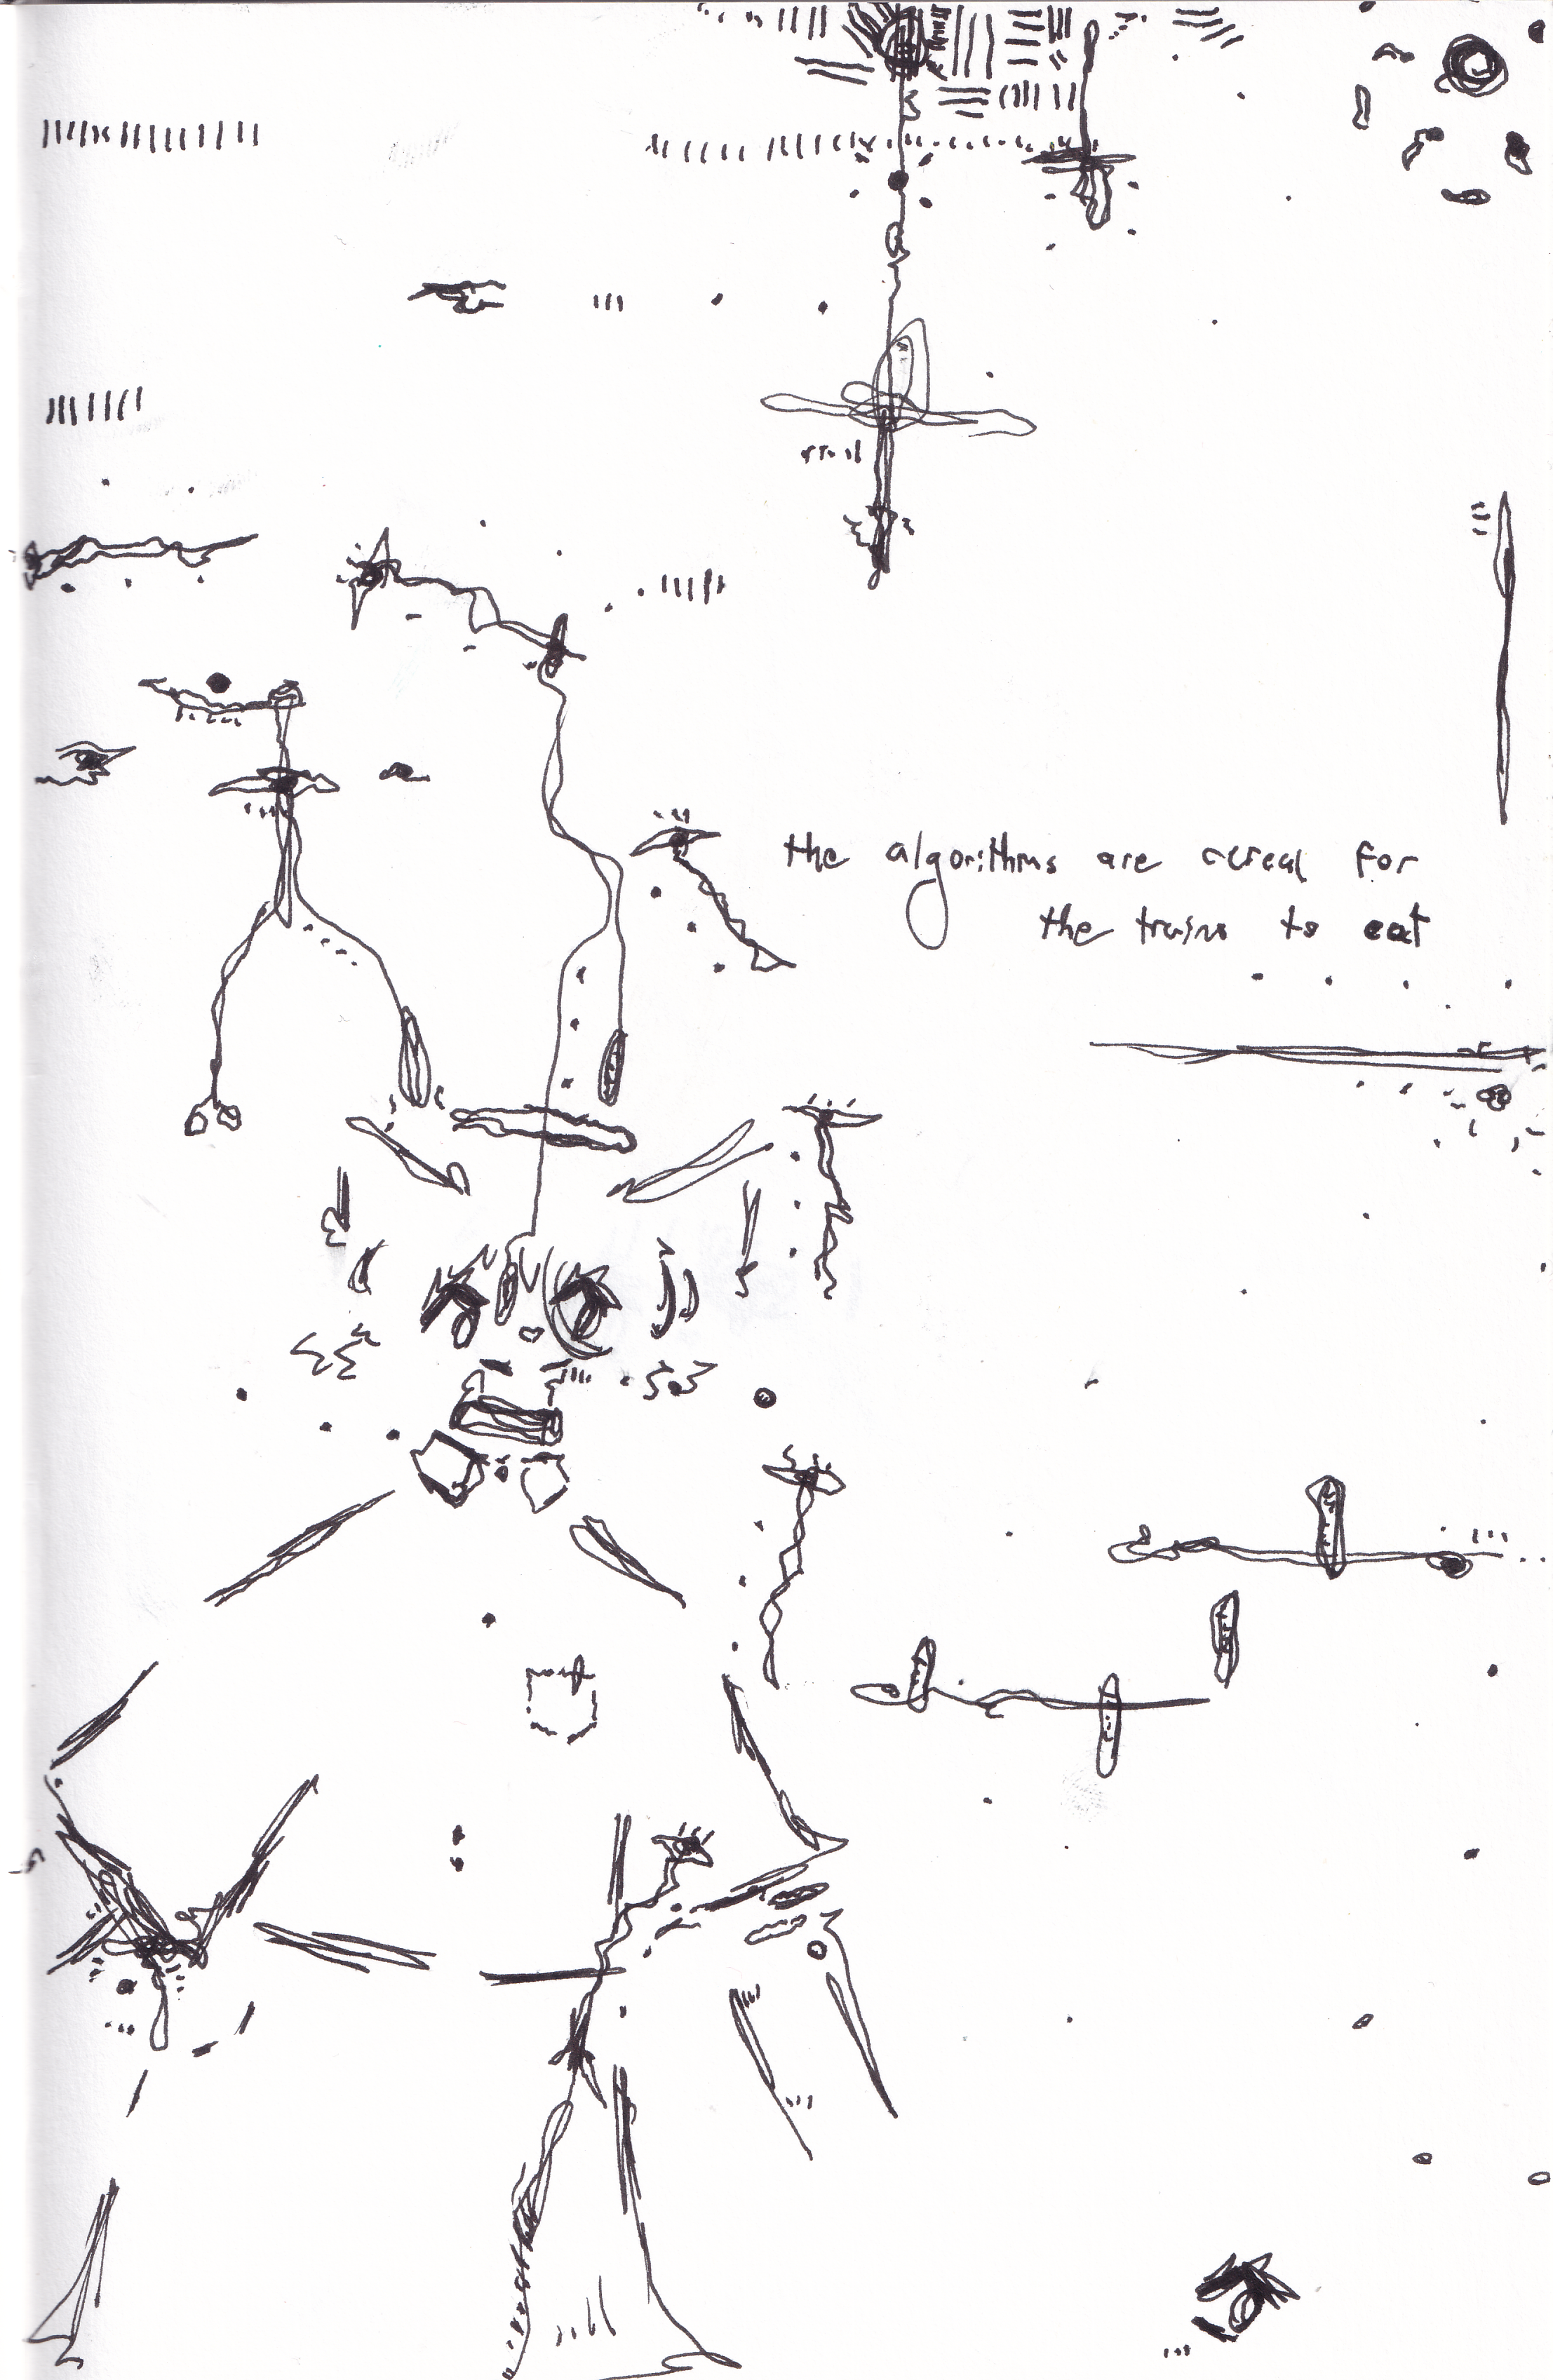 the algorithms are cereal for
the trains to eat